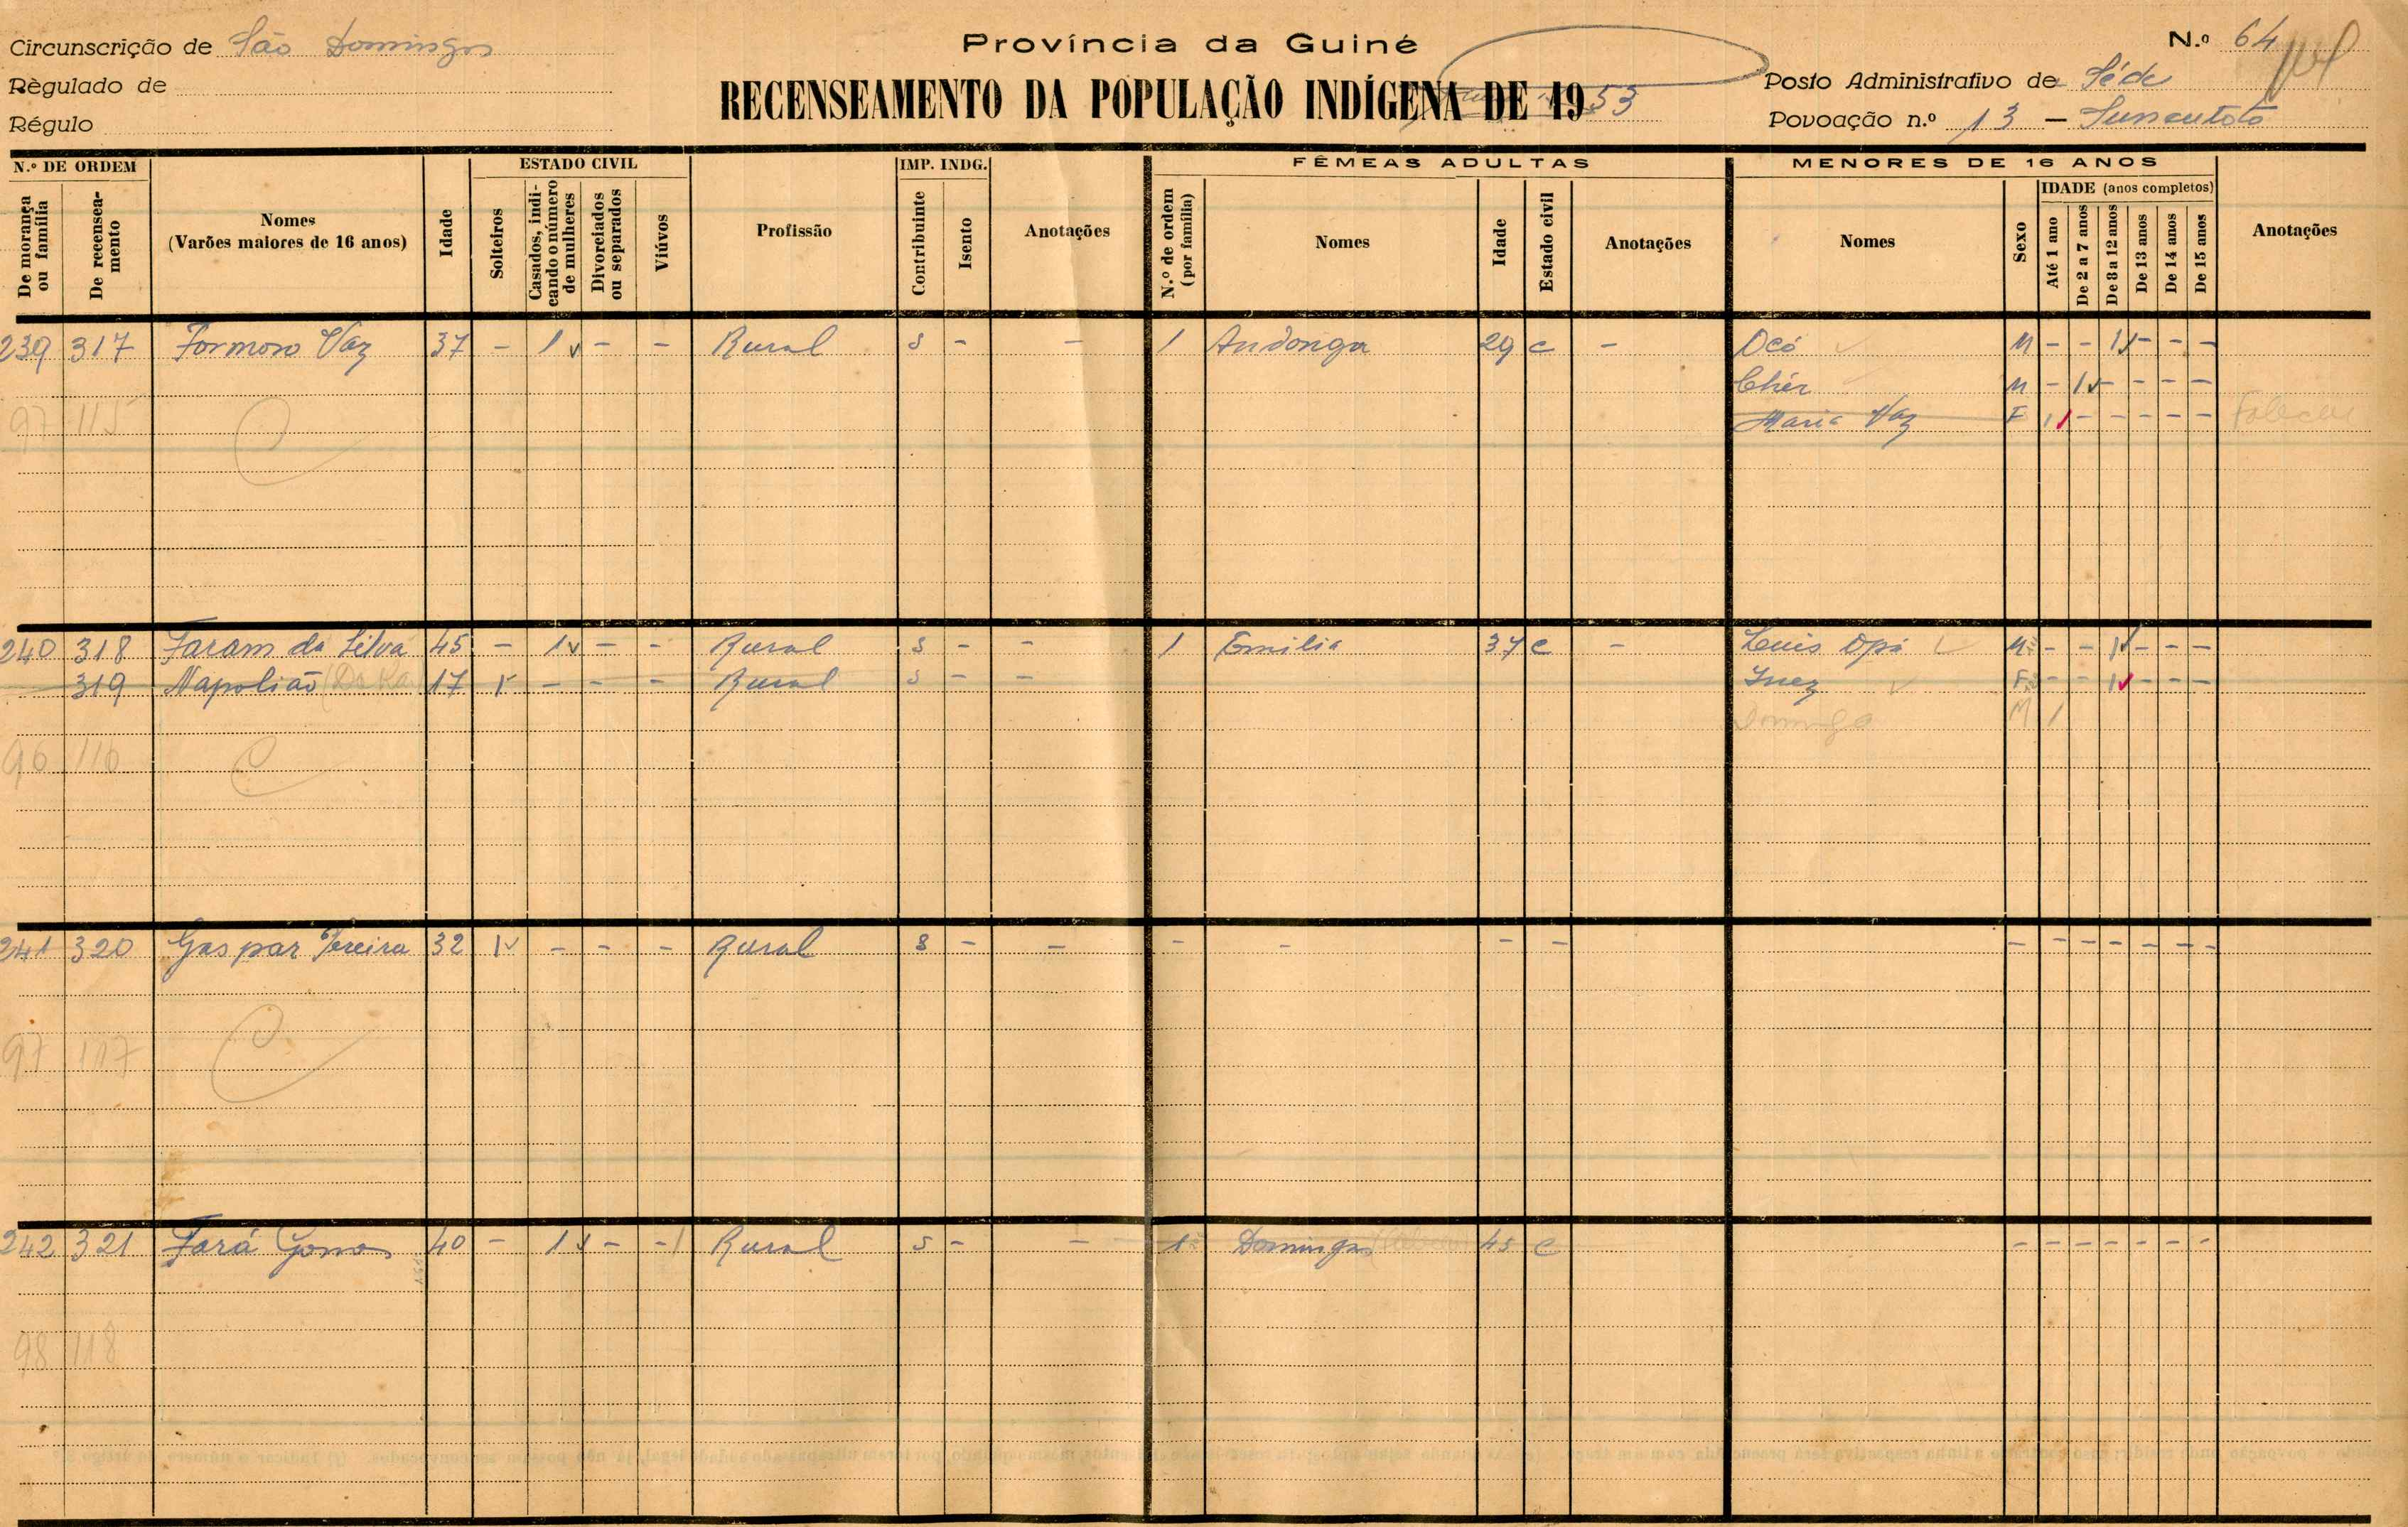 Circunscrição de São Domingos
Règulado de
Régulo
Província da Guiné
RECENSEAMENTO DA POPULAÇÃO INDÍGENA DE 1953
N.º 64
Posto Administrativo de Séde
Povoação n.º 13 –
N.º DE ORDEM
De morança ou família
De recenseamento
Nomes
(Varões maiores de 16 anos)
Idade
ESTADO CIVIL
Solteiros
Casados, indicando o número de mulheres
Divorciados ou separados
Viúvos
Profissão
IMP. INDG.
Contribuinte
Isento
Anotações
FÊMEAS ADULTAS
N.º de ordem (por família)
Nomes
Idade
Estado civil
Anotações
MENORES DE 16 ANOS
Nomes
Sexo
IDADE (anos completos)
Até 1 ano
De 2 a 7 anos
De 8 a 12 anos
De 13 anos
De 14 anos
De 15 anos
Anotações
239 317 Formoso Vaz 37 - 1 - - Rural S - - 1 Andonga 29 c - Ocó M - - 1 - - -
M - 1 - - - -
97 115 Maria Vaz F 1 - - - - -
240 318 Faram da Silva 45 - 1 - - Rural S - - 1 Emilia 37 c - Luis Opá M - - 1 - - -
319 Napolião 17 1 - - - Rural S - - Inez F - - 1 - - -
M 1
96 116
241 320 Gaspar Pereira 32 1 - - - Rural S - - - - - - - - - - - - -
97 117
242 321 Fará Gomes 40 - 1 - - Rural S - - 1 Domingas 45 c - - - - - - -
98 118